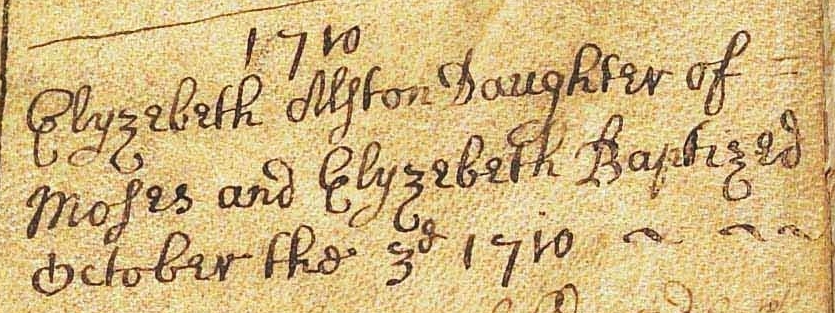 1710
Elyzebeth Alston Daughter of
Moses and Elyzebeth Baptized
October the 3d 1710